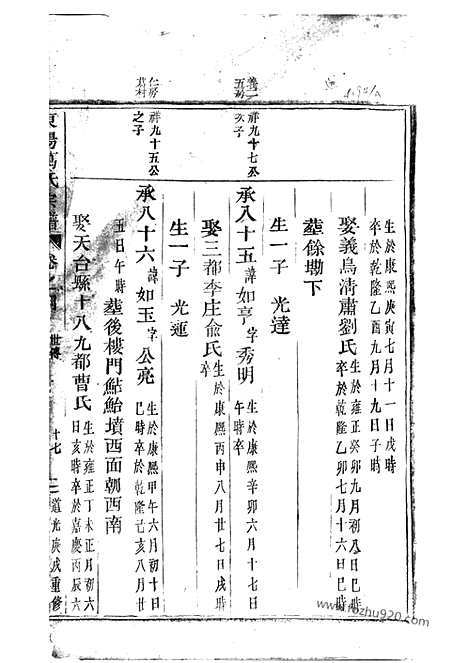 生於康熙庚寅七月十一日戌時
卒於乾隆乙酉九月十九日子時
娶義烏清肅劉氏 生於雍正癸卯九月初八日巳時
卒於乾隆乙卯七月十六日巳時
塟餘塸下
生一子 光達
祥九十七公
亥子
承八十五 諱如亨 字秀明 生於康熙辛卯六月十七日
午時卒
娶三都李庄俞氏 生於康熙丙申八月廿七日戌時
卒
生一子 光運
祥九十五公
之子
承八十六 諱如玉 字公亮 生於康熙甲午六月初十日
巳時卒於乾隆己亥八月廿
五日午時 塟後樓門鮎鮐墳西面朝西南
娶天台縣十八九都曹氏 生於雍正丁未正月初六
日亥時卒於嘉慶丙辰六
東陽萬氏宗譜 卷之 世傳 十七 道光庚戌重修
www.fozhu920.com